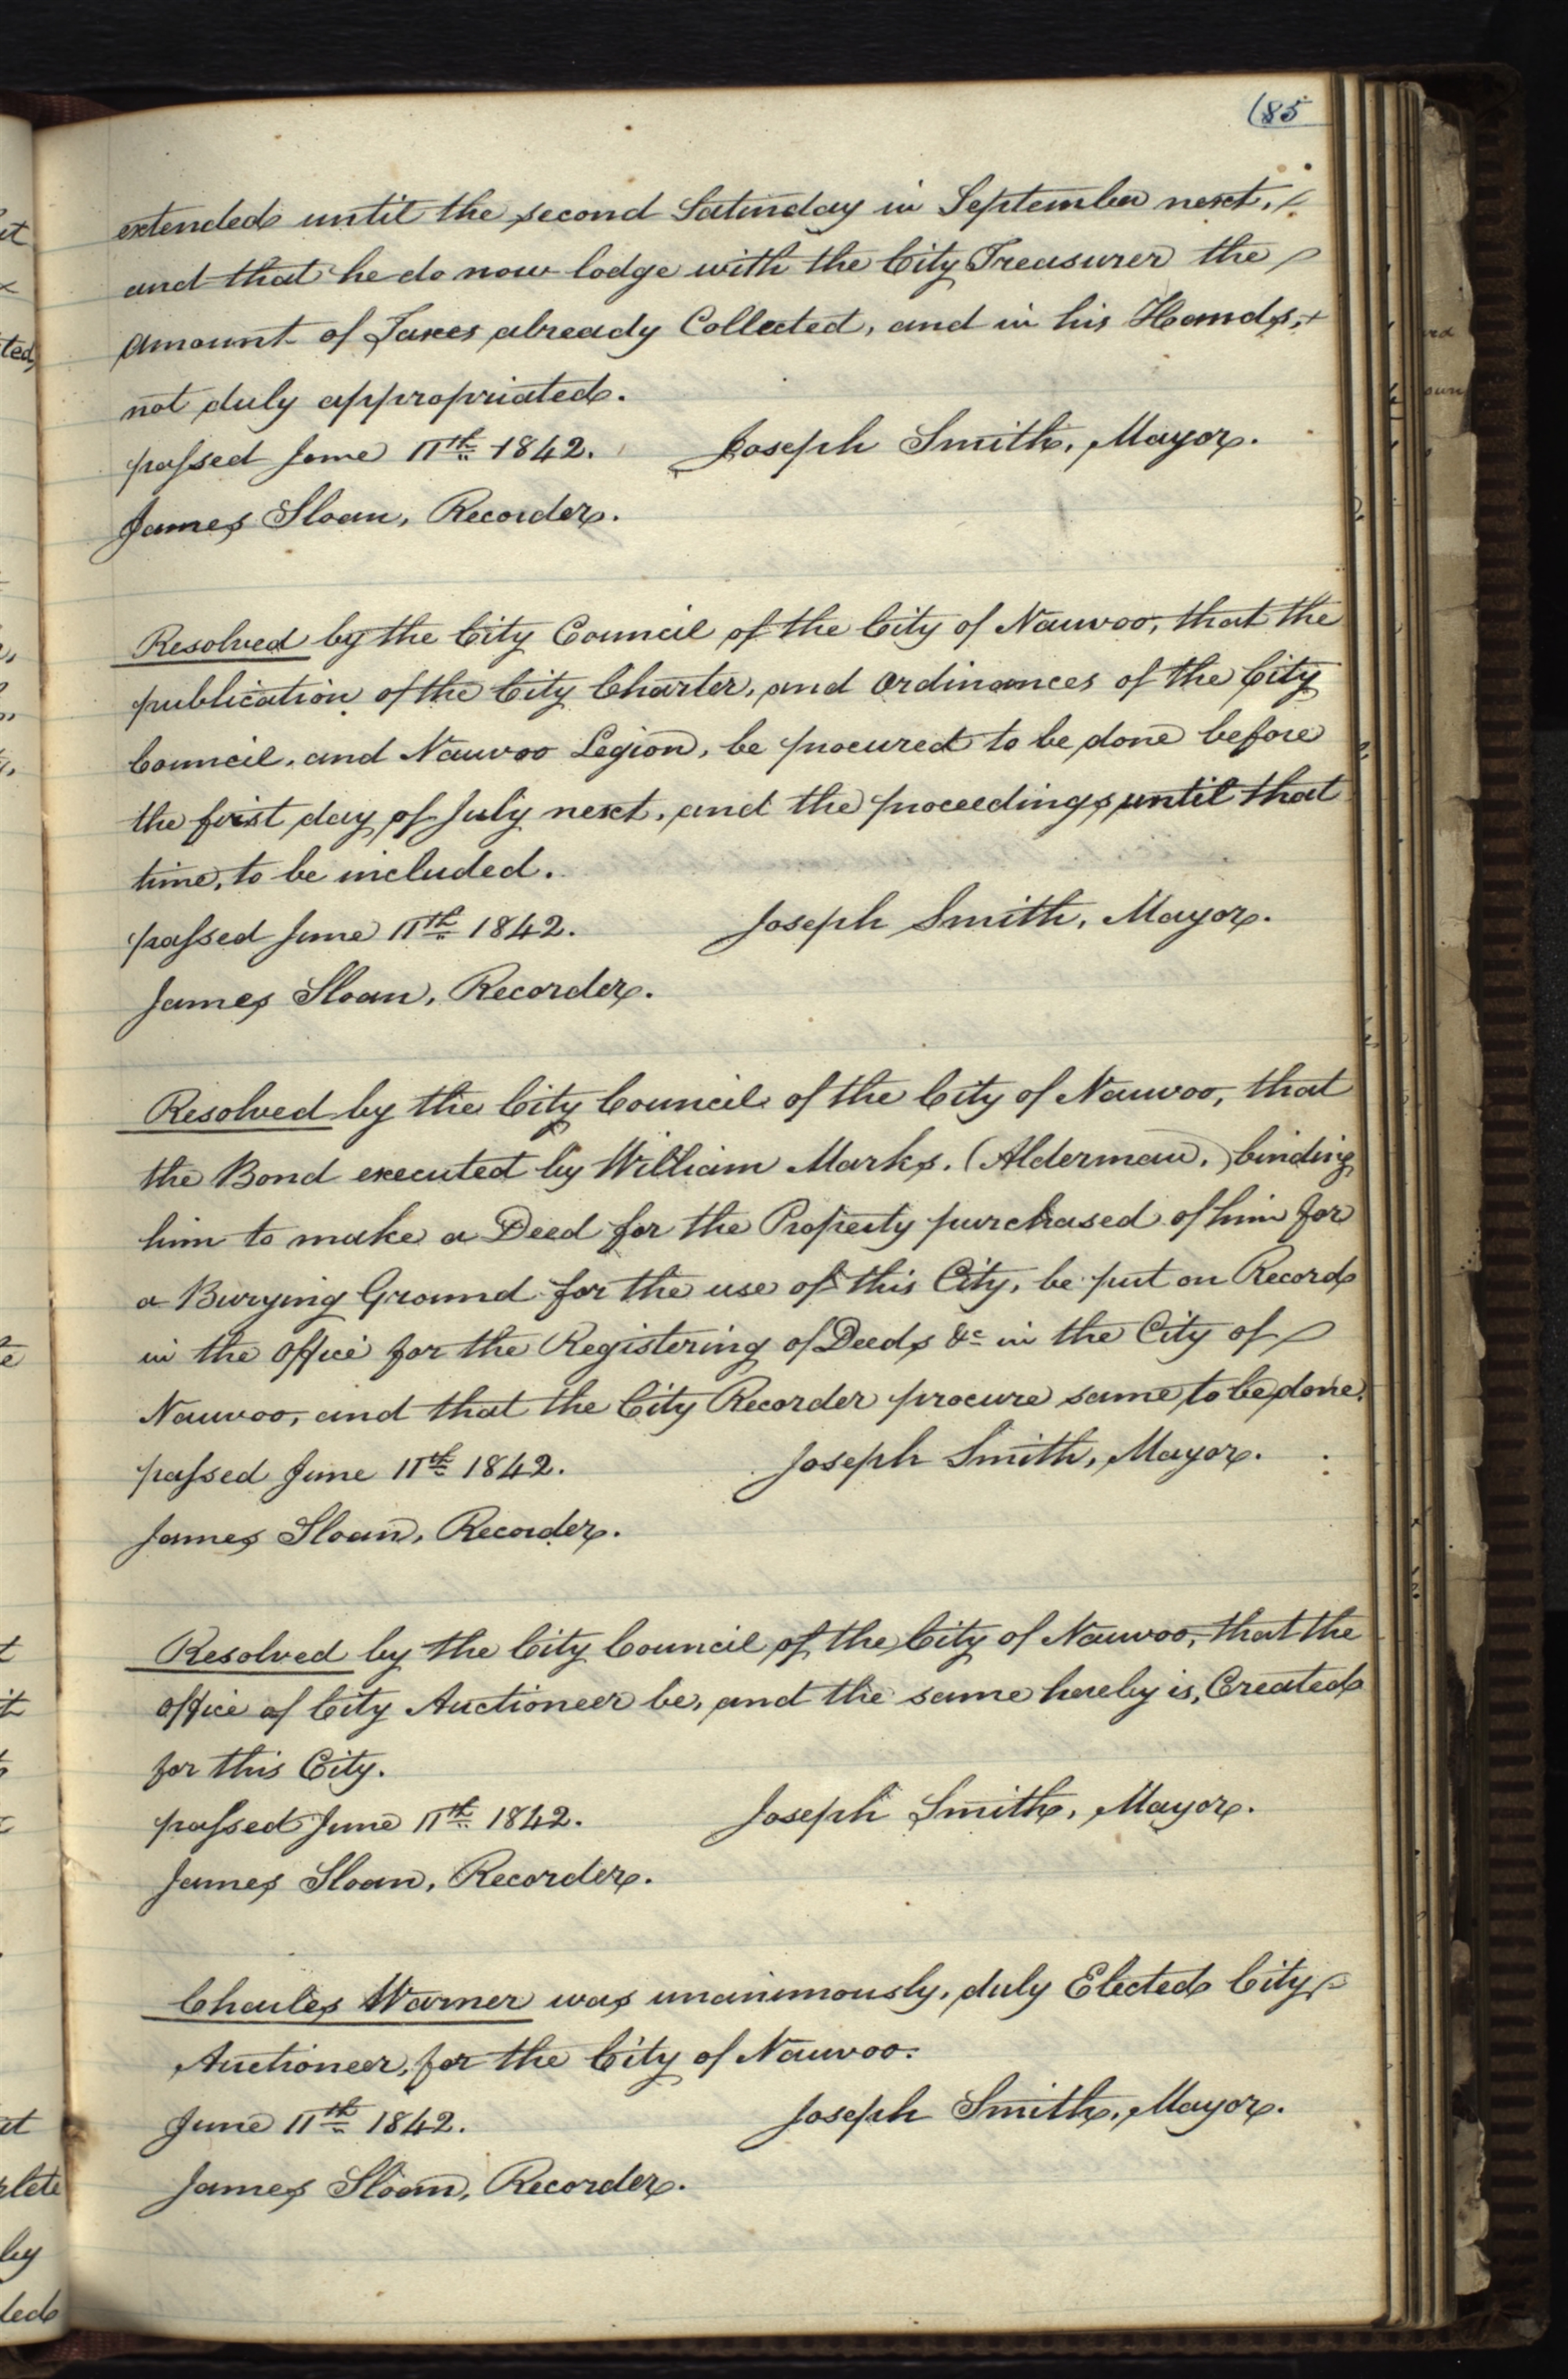 (85
extended until the second Saturday in September next,
and that he do now lodge with the City Treasurer the
amount of Taxes already Collected, and in his Hands,
not duly appropriated.
passed June 11th 1842. Joseph Smith, Mayor.
James Sloan, Recorder.
Resolved by the City Council of the City of Nauvoo, that the
publication of the City Charter, and Ordinances of the City
Council, and Nauvoo Legion, be procured to be done before
the first day of July next, and the proceedings until that
time, to be included.
passed June 11th 1842. Joseph Smith, Mayor.
James Sloan, Recorder.
Resolved by the City Council of the City of Nauvoo, that
the Bond executed by William Marks, (Alderman,) binding
him to make a Deed for the Property purchased of him for
a Burying Ground for the use of this City, be put on Record
in the Office for the Registering of Deeds &c in the City of
Nauvoo, and that the City Recorder procure same to be done.
passed June 11th 1842. Joseph Smith, Mayor.
James Sloan, Recorder.
Resolved by the City Council of the City of Nauvoo, that the
office of City Auctioneer be, and the same hereby is, Created
for this City.
passed June 11th 1842. Joseph Smith, Mayor.
James Sloan, Recorder.
Charles Warner was unanimously, duly Elected City
Auctioneer, for the City of Nauvoo.
June 11th 1842. Joseph Smith, Mayor.
James Sloan, Recorder.